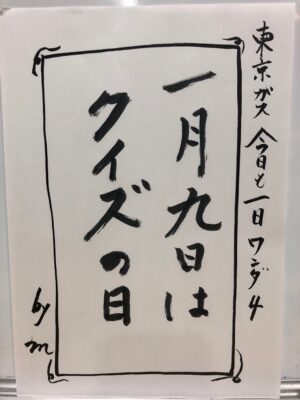 東京ガス 今日も一日ワンダ4
一月九日は
クイズの日
by m